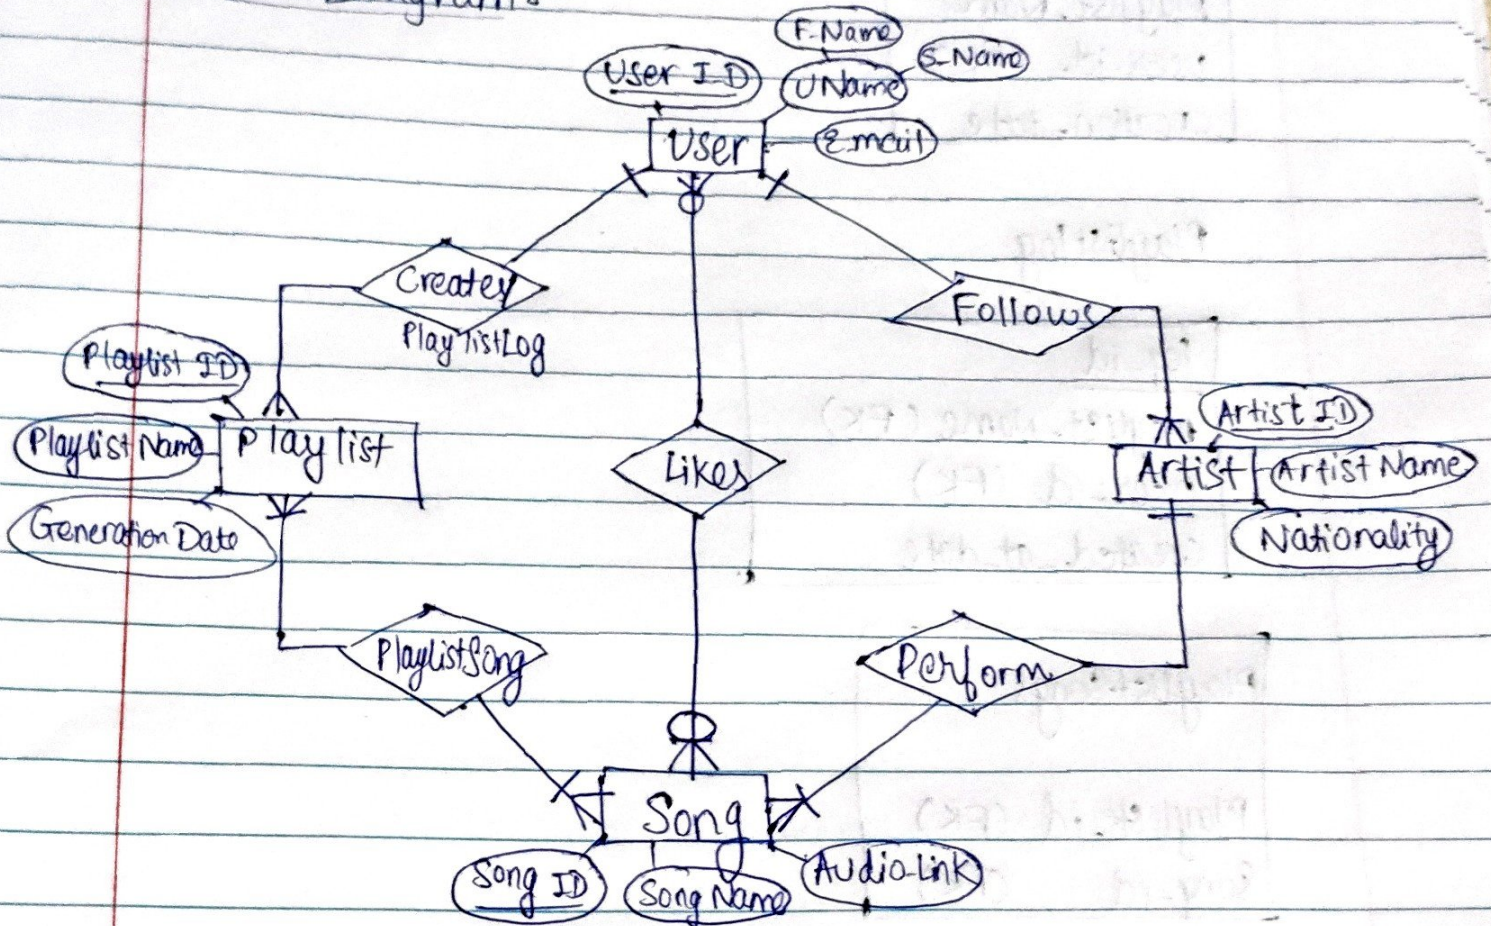 F-Name
S-Name
User ID
UName
User
Email
Creates
PlaylistLog
Follows
Playlist ID
Playlist Name
Playlist
Generation Date
Likes
Artist ID
Artist
Artist Name
Nationality
PlaylistSong
Perform
Song
Song ID
Song Name
Audio-Link